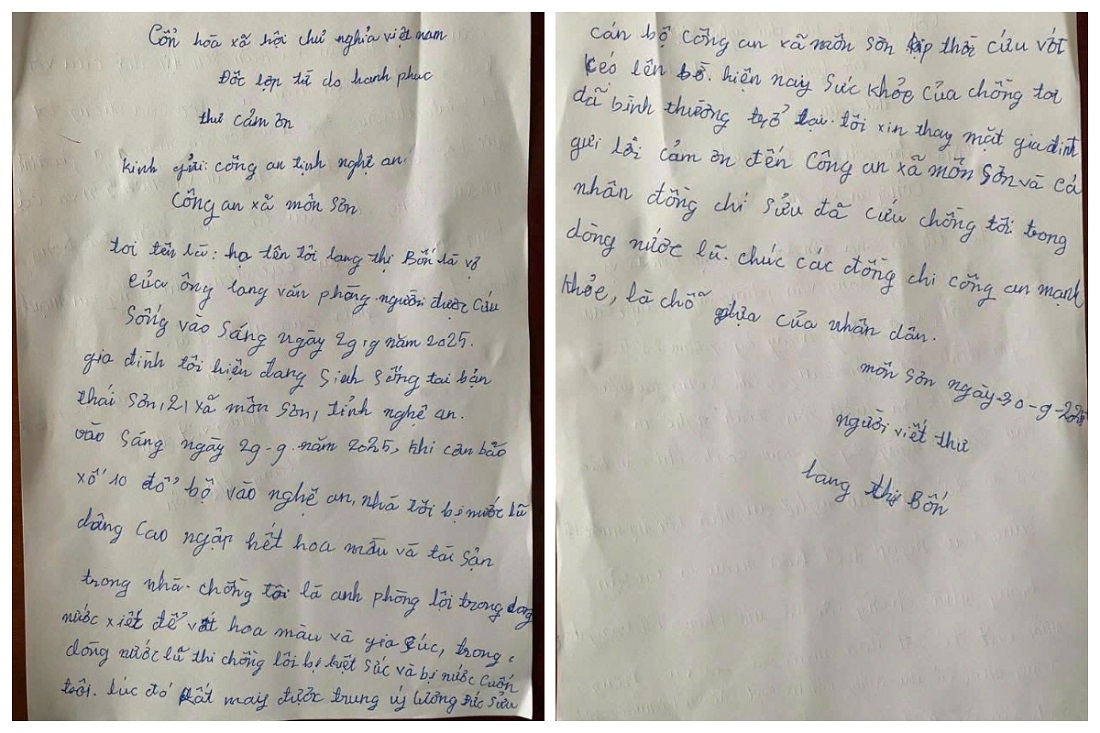 Cổn hòa xã hội chủ nghĩa việt nam
Đốc lợp tữ do hanh phuc
thư cảm ơn
kinh gửi: công an tịnh nghệ an.
Công an xã môn sơn
tơi tên là: họ tên tôi lang thị Bốn là vợ
của ông lang văn phòng người được cứu
sống vào sáng ngày 29.9 năm 2025.
gia đinh tôi hiện đang sinh sống tai bản
thái sơn, 2, xã môn sơn, tỉnh nghệ an.
vào sáng ngày 29-9 năm 2025, khi cơn bão
xố 10 đổ bộ vào nghệ an, nhà tôi bị nước lũ
dâng cao ngập hết hoa mầu và tài sản
trong nhà. chồng tôi là anh phòng lội trong dong
nước xiết để vớt hoa màu và gia súc, trong
dòng nước lũ thi chồng tôi bị kiệt sức và bị nước cuốn
trôi. lúc đó rất may được trung úy lương đức sửu
cán bộ công an xã môn sơn kịp thời cứu vớt
kéo lên bờ. hiện nay sức khỏe của chồng tơi
đã bình thường trở lại. tôi xin thay mặt gia đinh
gưi lời cảm ơn đến Công an xã môn sơn và cá
nhân đồng chi sửu đã cứu chồng tôi trong
dòng nước lũ. chúc các đồng chi công an mạnh
khỏe, là chỗ dựa của nhân dân.
môn sơn ngày 30-9-2025
người viết thư
lang thị Bốn